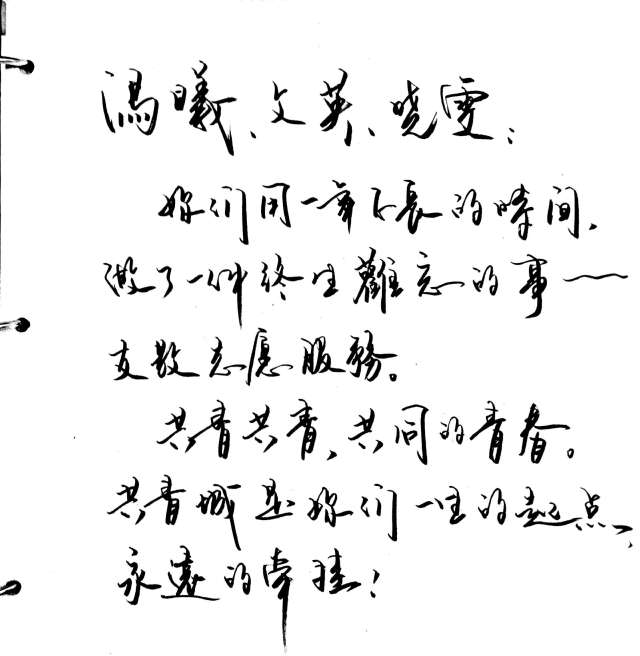 冯曦、文英、晓雯：
妳们用一年不長的時间，
做了一件终生難忘的事——
支教志愿服務。
共青共青，共同的青春。
共青城是妳们一生的起点，
永遠的牵挂！